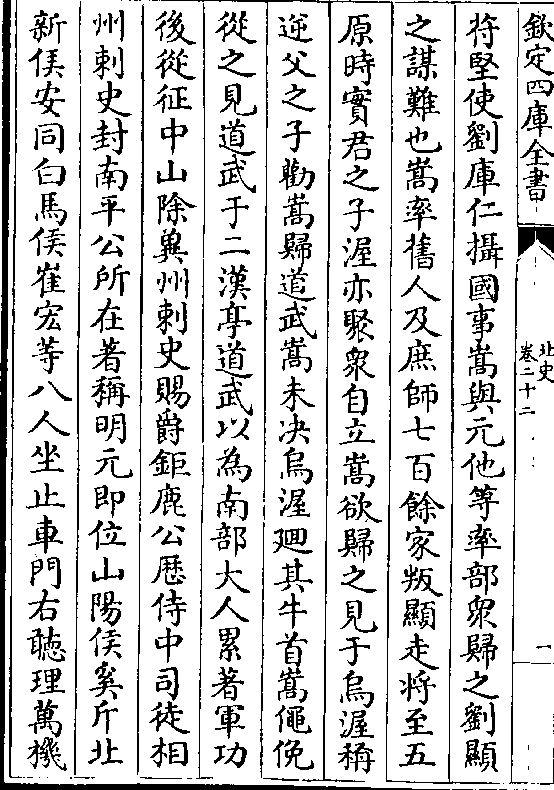 欽定四庫全書
北史
卷二十二
一
苻堅使劉庫仁攝國事嵩與元他等率部眾歸之劉顯
之謀難也嵩率舊人及庶師七百餘家叛顯走將至五
原時實君之子渥亦聚眾自立嵩欲歸之見于烏渥稱
逆父之子勸嵩歸道武嵩未決烏渥迴其牛首嵩僶俛
從之見道武于二漢亭道武以為南部大人累著軍功
後從征中山除兾州刺史賜爵鉅鹿公歷侍中司徒相
州刺史封南平公所在著稱明元即位山陽侯奚斤北
新侯安同白馬侯崔宏等八人坐止車門右聽理萬機